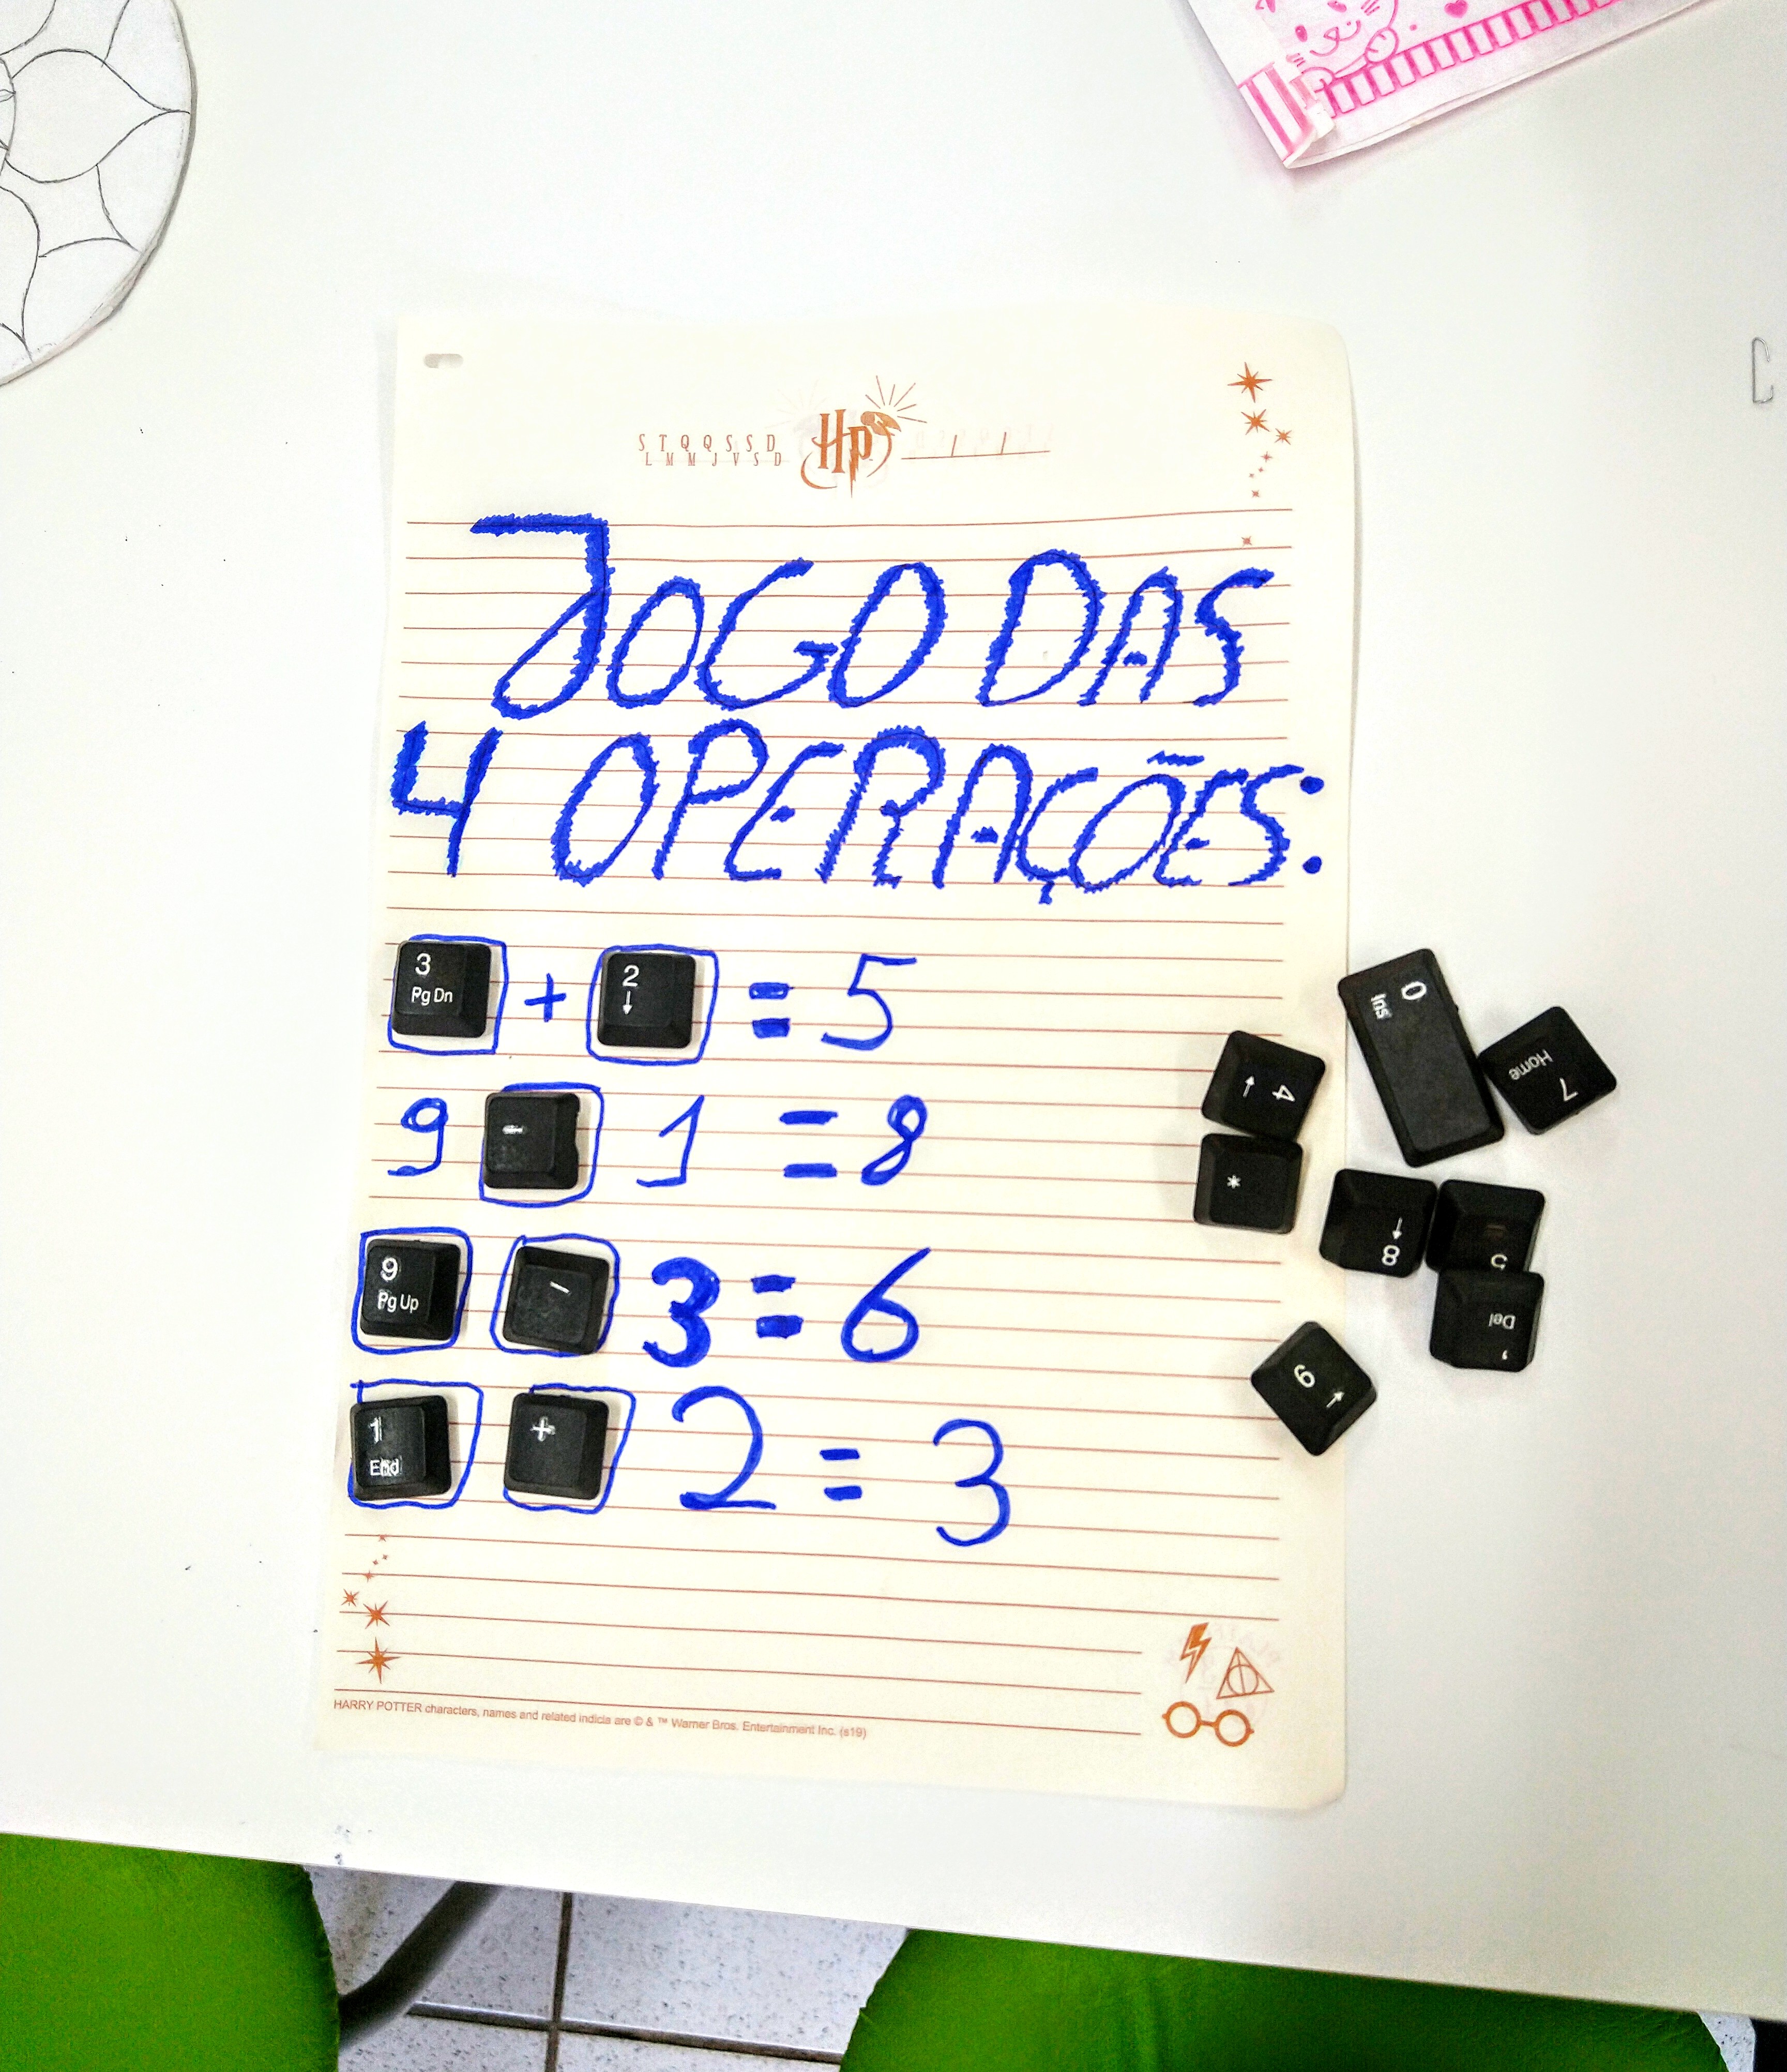 S T Q Q S S D
L M M J V S D
HP
/ /
JOGO DAS
4 OPERAÇÕES:
3 Pg Dn + 2 ↓ = 5
9 - 1 = 8
9 Pg Up - 3 = 6
1 End + 2 = 3
0 Ins
7 Home
4 ←
*
8 ↑
5
Del ,
6 →
HARRY POTTER characters, names and related indicia are © & ™ Warner Bros. Entertainment Inc. (s19)